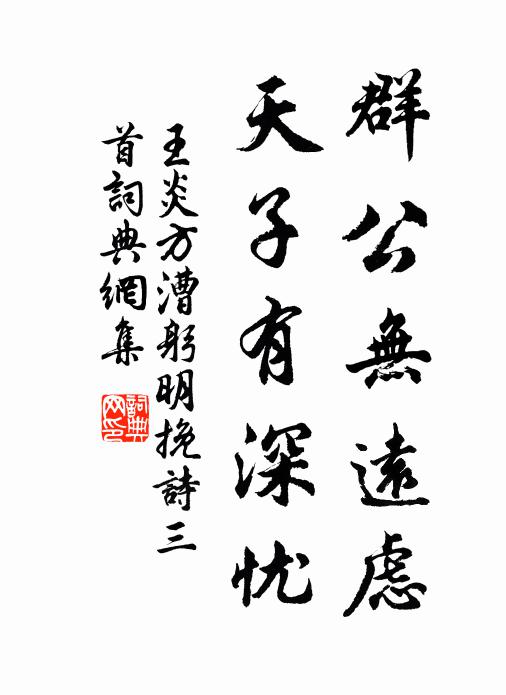 群公無遠慮
天子有深忧
王炎方漕躬明挽詩三
首詞典網集
詞典
网印